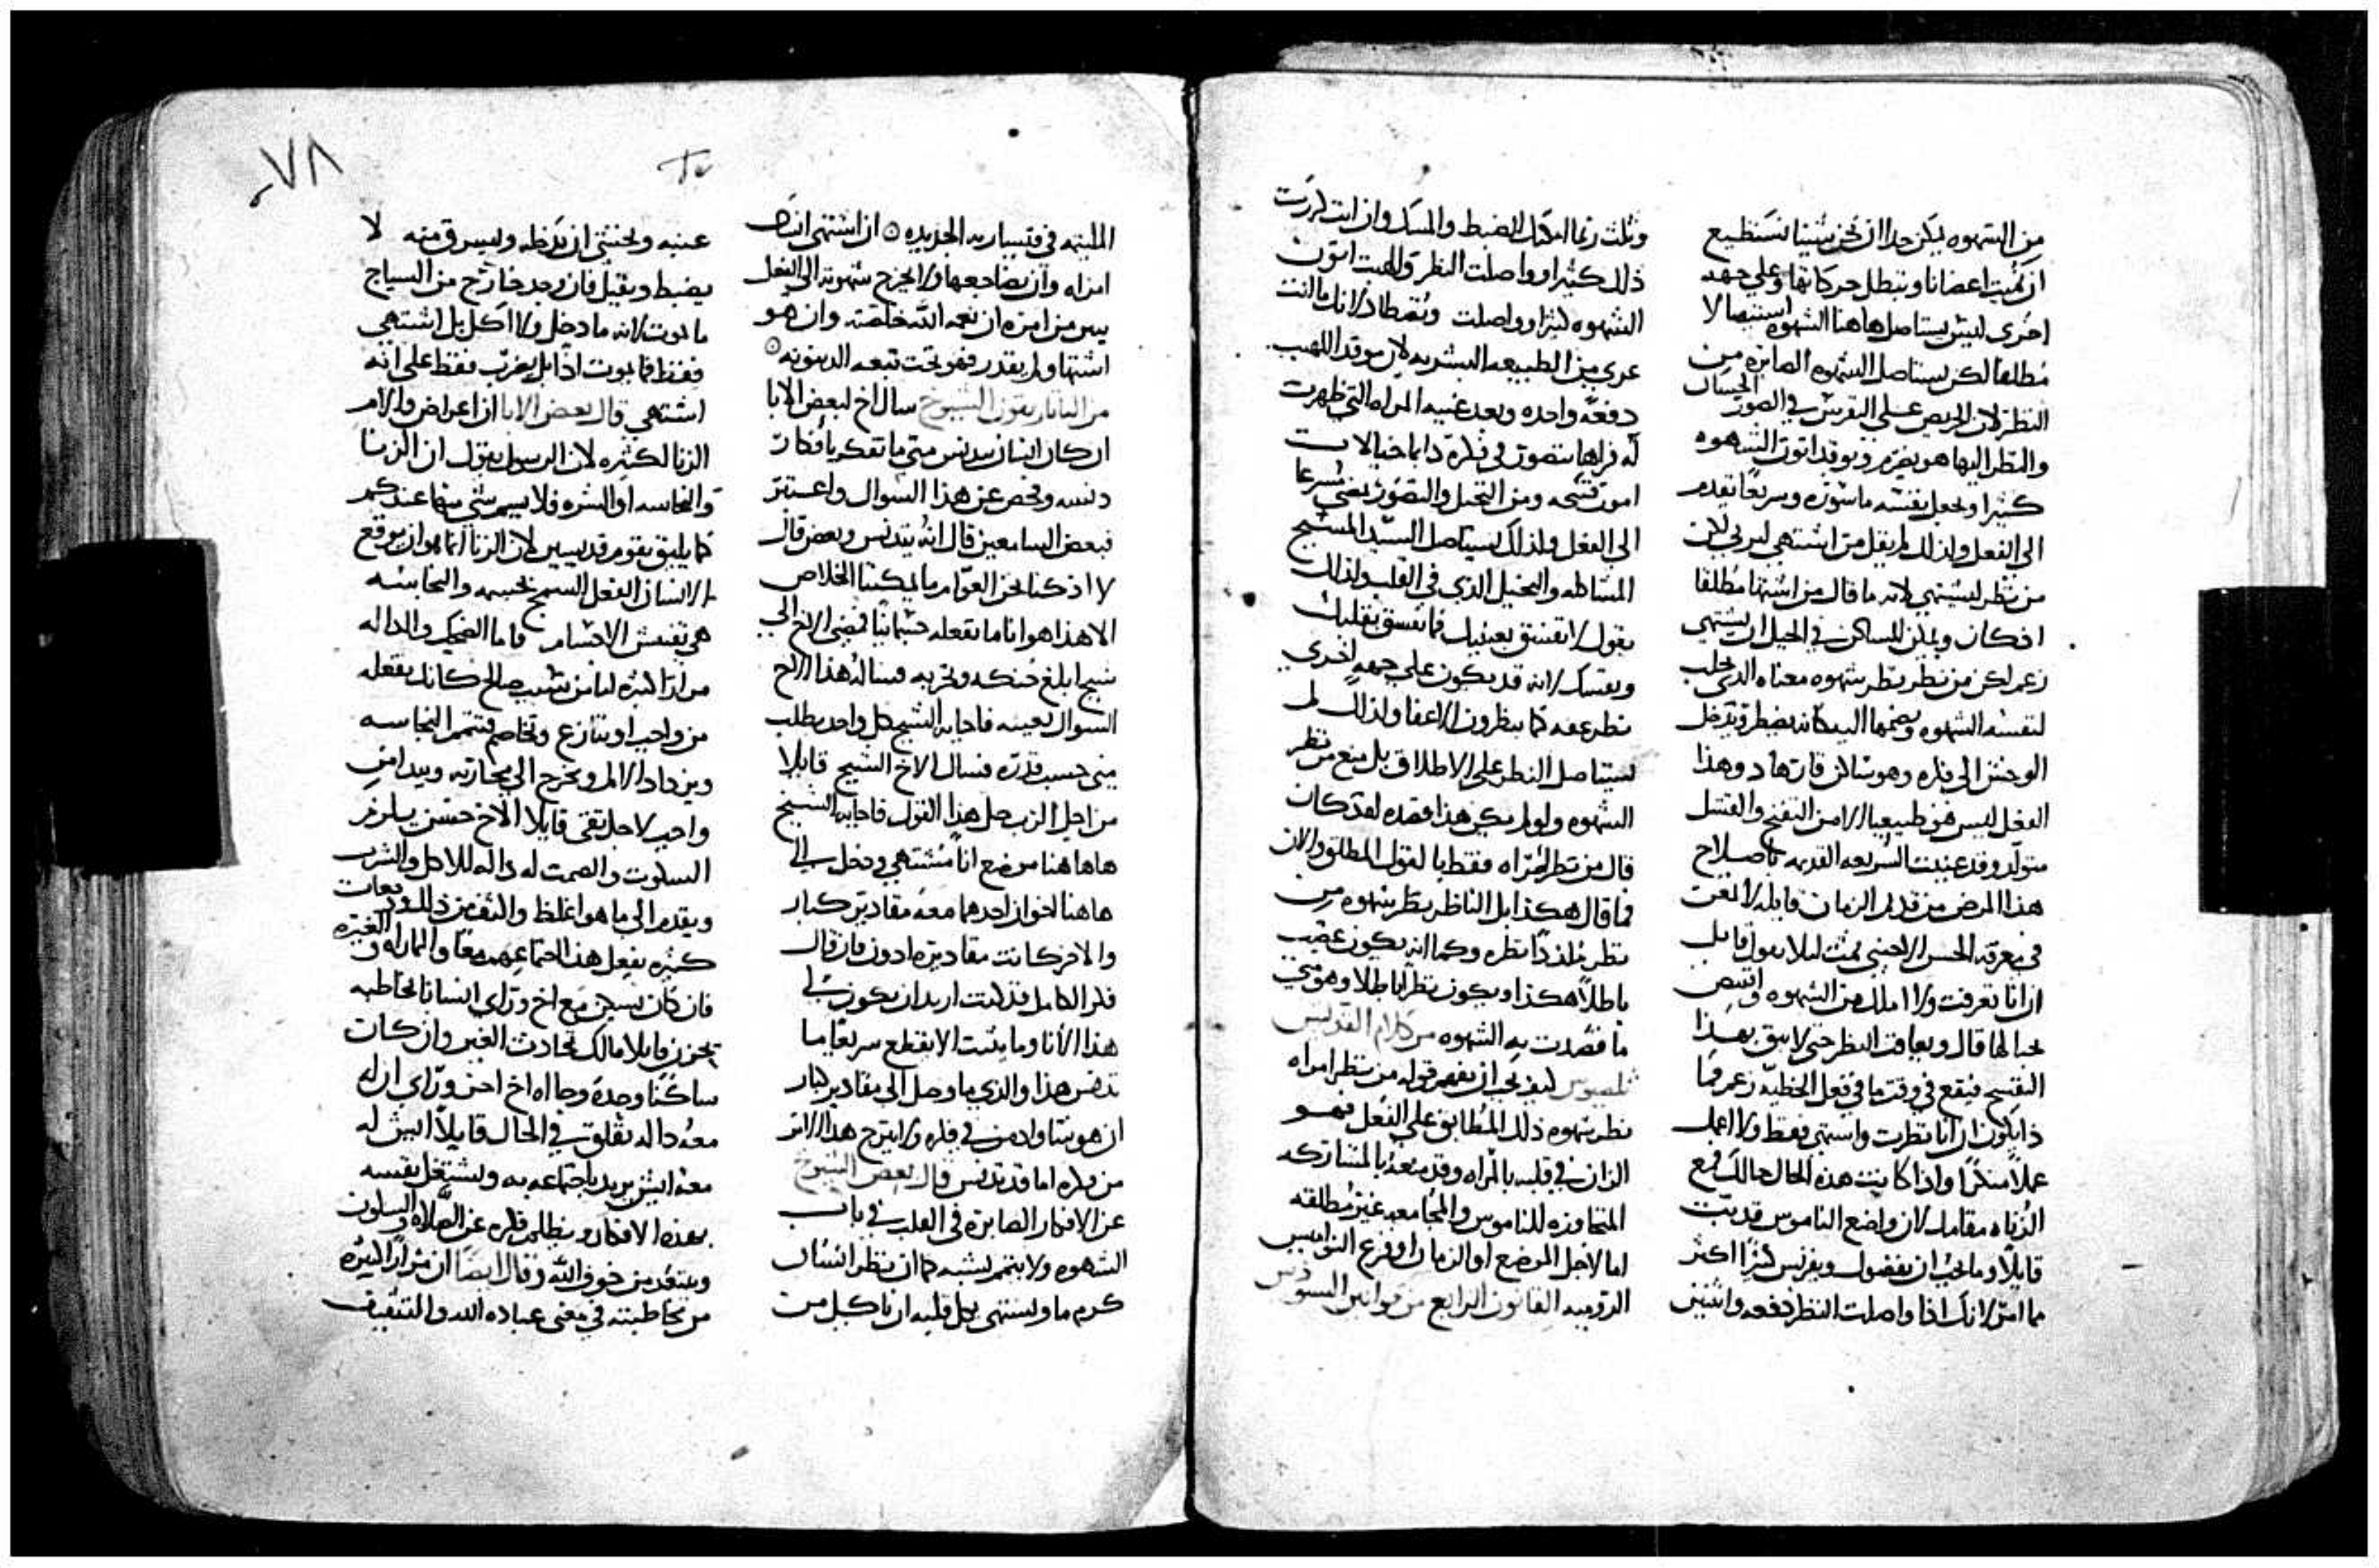 من الشهوه يمكن جدا ان نحن شينا نستطيع
ان نميت اعضانا ونبطل حركاتها وعلي جهه
اخري ليس يستاصل هاهنا الشهوه استيصالا
مطلقا لكن يستاصل الشهوه الصايره من
النظر لان الحريص علي التفرس في الصور الحسان
والنظر اليها هو يضرم ويوقد اتون الشهوه
كثيرا ويجعل نفسه ماسوره وسريعا يقدم
الي الفعل ولذلك لم يقل من اشتهي ليزني لان
من نظر ليشتهي لانه ما قال من اشتها مطلقا
اذ كان ويمكن للساكن في الجبل ان يشتهي
زعم لكن من نظر نظر شهوه معناه الذي يجلب
لنفسه الشهوه ويضمها اليه كانه يضطر ويدخل
الوحش الي فكره وهو ساكن قارتها د وهذا
الفعل ليس هو طبيعيا الا من التفنج والفشل
متولد وقد عنيت الشريعه القديمه باصلاح
هذا المرض من قديم الزمان قايله لا تمعن
في معرفه الحسن الاجنبي ثمت ليلا يقول قايل
ان انا تعرفت ولا املك من الشهوه واقتنص
خيالها قال ويعاقب النظر حتي لا يثق بهذا
التفسيح فيقع في وقت ما في فعل الخطيه زعم فما
ذا يكون ان انا نظرت واشتهي فقط ولا اعمل
عملا منكرا واذا كانت هذه الحال حالك فمع
الزناه مقامك لان واضع الناموس قد بت
قايلا وما يجب ان نفضول ويفرنس كنزا اكثر
مما امر لانك اذا واصلت النظر دفعه واثنين
وثلث ربما امكنك الضبط والمسك وان انت كررت
ذلك كثيرا وواصلت النظر والهبت اتون
الشهوه كثيرا وواصلت وتصطاد لانك ما انت
عري من الطبيعه البشريه لان موقد اللهيب
دفعه واحده وبعد غيبه المراه التي ظهرت
له فراها يتصور في فكره دايما خيالات
امور قبيحه ومن التخيل والتصور يمضي مسرعا
الي الفعل ولذلك يستاصل السيد المسيح
المشاطه والتخيل الذي في القلب ولذلك
يقول لا تفسق بعينيك فما تفسق بقلبك
ونفسك لانه قد يكون علي جهه اخري
نظر عفه كما ينظرون الاعفا ولذلك لم
يستاصل النظر علي الاطلاق بل منع من نظر
الشهوه ولو لم يكن هذا قصده لقد كان
قال من نظر امراه فقط بالقول المطلق والان
فما قال هكذا بل الناظر نظر شهوه من
نظر متلذذا نظره وكما انه يكون غضب
باطلا هكذا ويكون نظرا باطلا وهو متي
ما قصدت به الشهوه من كلام القديس
كيف يجب ان نفهم قوله من نظر امراه
نظر شهوه ذلك المطابق علي الفعل فهو
الزاني في قلبه بالمراه وقد منعه بالمشاركه
المتجاوزه للناموس والمجامعه غير مطلقه
اما لاجل الموضع او الزمان او فزع النواميس
الروميه القانون الرابع من قوانين
المليته في قيساريه الجديده ان اشتهي انسان
امراه وان يضاجعها ولا تخرج شهوته الي الفعل
يبين من امره ان نعمه الله خلصته وان هو
اشتها ولم يقدر فهو تحت تبعه الدينونه
من الباتاريقون الشيوخ سال اخ لبعض الابا
ان كان انسان يتدنس متي ما تفكر بافكار
دنسه وفحص عن هذا السوال واعتبر
فبعض السامعين قال انه يتدنس وبعض قال
لا اذ كنا نحن العوام ما يمكننا الخلاص
الا هذا هو انا ما نفعله جسمانيا فمضي الاخ الي
شيخ ابلغ حنكه وتجربه فساله هذا الاخ
السوال بعينه فاجابه الشيخ كل واحد يطلب
مني حسب قدره فسال الاخ الشيخ قايلا
من اجل الرب حل هذا القول فاجابه الشيخ
هاها هنا موضع انا مشتهي ودخل الي
هاهنا اخوان احدهما معه مقادير كبار
والاخر كانت مقاديره ادون فان قال
فكر الكامل قد كنت اريد ان يكون لي
هذا الانا وما يثبت الا يقطع سريعا ما
تدنس هذا والذي ما وصل الي مقادير كبار
ان هو تناواد من في فكره ولا يترج هذا الاثر
من فكره اما قد تدنس قال بعض الشيوخ
عن الافكار الصايره في القلب في باب
الشهوه ولا يتم يشبه كما ان نظر انسان
كرم ما ويشتهي بكل قلبه ان ياكل من
عنبه ويخشي ان يدخله ويسرق منه لا
يضبط ويقتل فان وجد خارج من السياج
ما يموت لانه ما دخل ولا اكل بل اشتهي
فقط فما يموت اذا بل يضرب فقط علي انه
اشتهي قال بعض الابا ان اعراض والام
الزنا لكثيره لان الرسول يقول ان الزنا
والنجاسه او الشره فلا يسمي شي منها عندكم
كما يليق بقوم قديسين لان الزنا انما هو ان يوقع
الانسان الفعل السمج بجسمه والنجاسه
هي تفتيش الاجسام فاما الضحك والداله
مرارا كثيره انا من شيب صالح كانك يفعله
من واجب او يتنازع وتخاصم فتتم النجاسه
ويزداد الالم ويخرج الي محاربته ويبدا من
واجب لاجل تقي قايلا الاخ حسن يلزم
السكوت والصمت له داله للاكل والشرب
ويقدم الي ما هو اغلظ وانتن من ذلك ودفعات
كثيره يفعل هذا اجتماعهم معا والماراه والغيره
فان كان يسكن مع اخ وراي انسانا يخاطبه
يحزن قايلا مالك تحادث الغير وان كان
ساكنا وحده وجا اه اخ اخر وراي ان له
معه داله يقلق في الحال قايلا ايش له
معه ايش يريد باجتماعه به ويشتغل نفسه
بهذه الافكار ويظلم فكره عن الصلاه والسكون
ويبتعد من خوف الله وقال ايضا ان مرارا كثيره
من يخاطبته في معني عباده الله والتثقيف